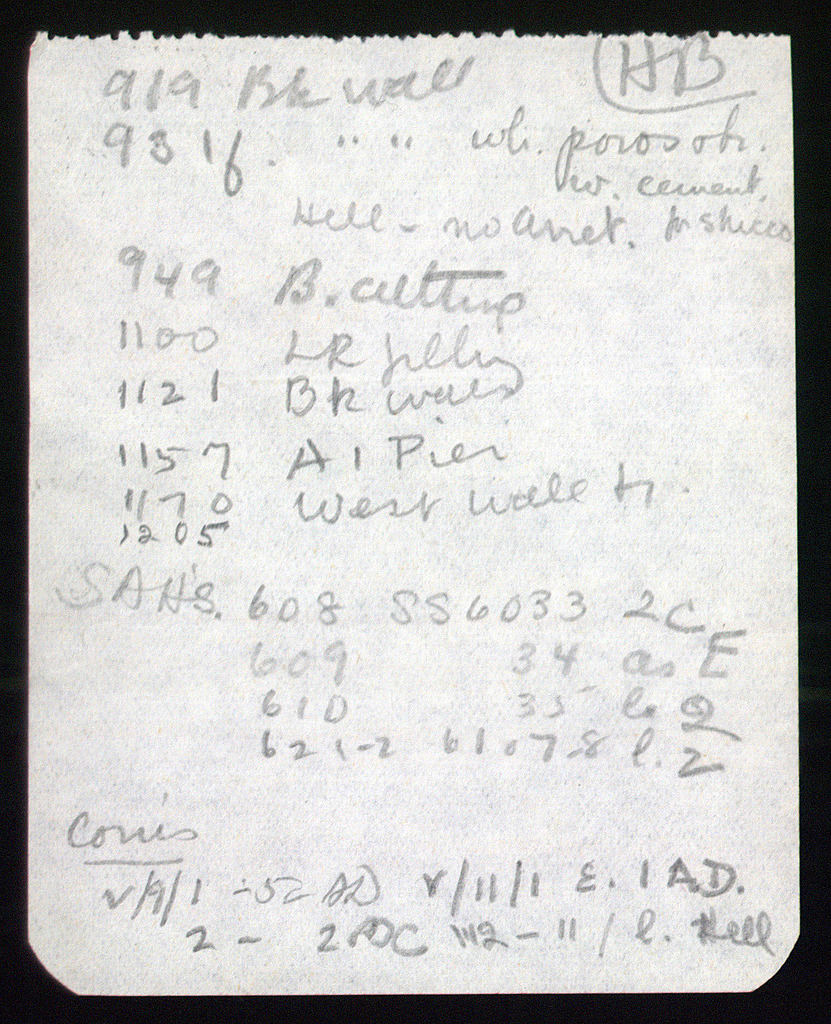 HB
919 Bk wall
931f. " " wh. poros
w. cement.
Hell - no Arret. for stucco
949 B. cutting
1100 LR filling
1121 Bk wall
1157 A 1 Pier
1170 West wall tr.
1205
SAH's. 608 SS6033 2C
609 34 as E
610 35 l. 2
621-2 6107-8 l. 2
Coins
V/9/1 - AD V/11/1 E. 1 A.D.
2 - 2 - 11 / l. Hell